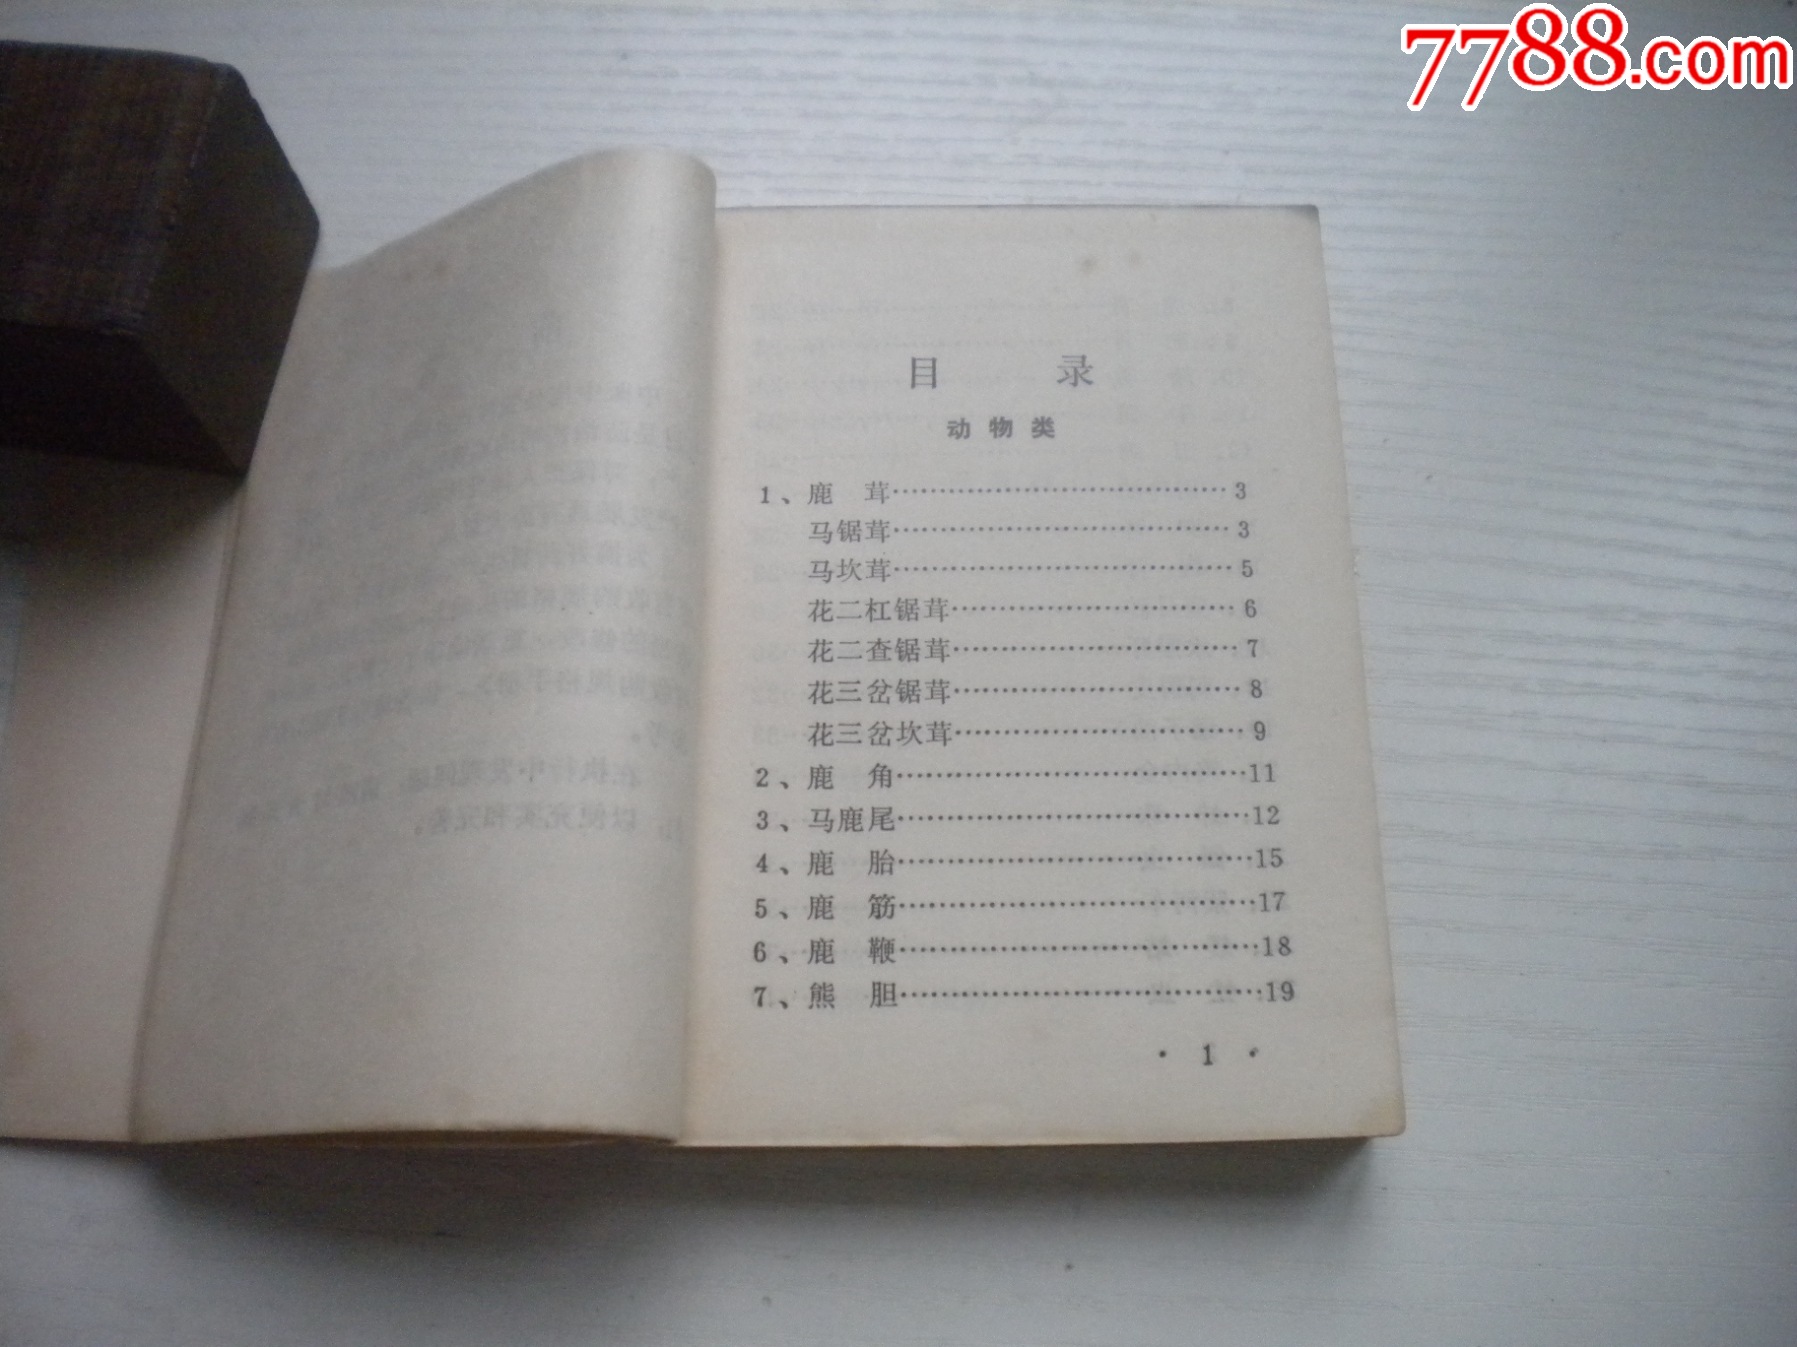 7788.com
目 录
动物类
1、鹿 茸…………………………………3
马锯茸…………………………………3
马坎茸…………………………………5
花二杠锯茸……………………………6
花二查锯茸……………………………7
花三岔锯茸……………………………8
花三岔坎茸……………………………9
2、鹿 角…………………………………11
3、马鹿尾…………………………………12
4、鹿 胎…………………………………15
5、鹿 筋…………………………………17
6、鹿 鞭…………………………………18
7、熊 胆…………………………………19
· 1 ·